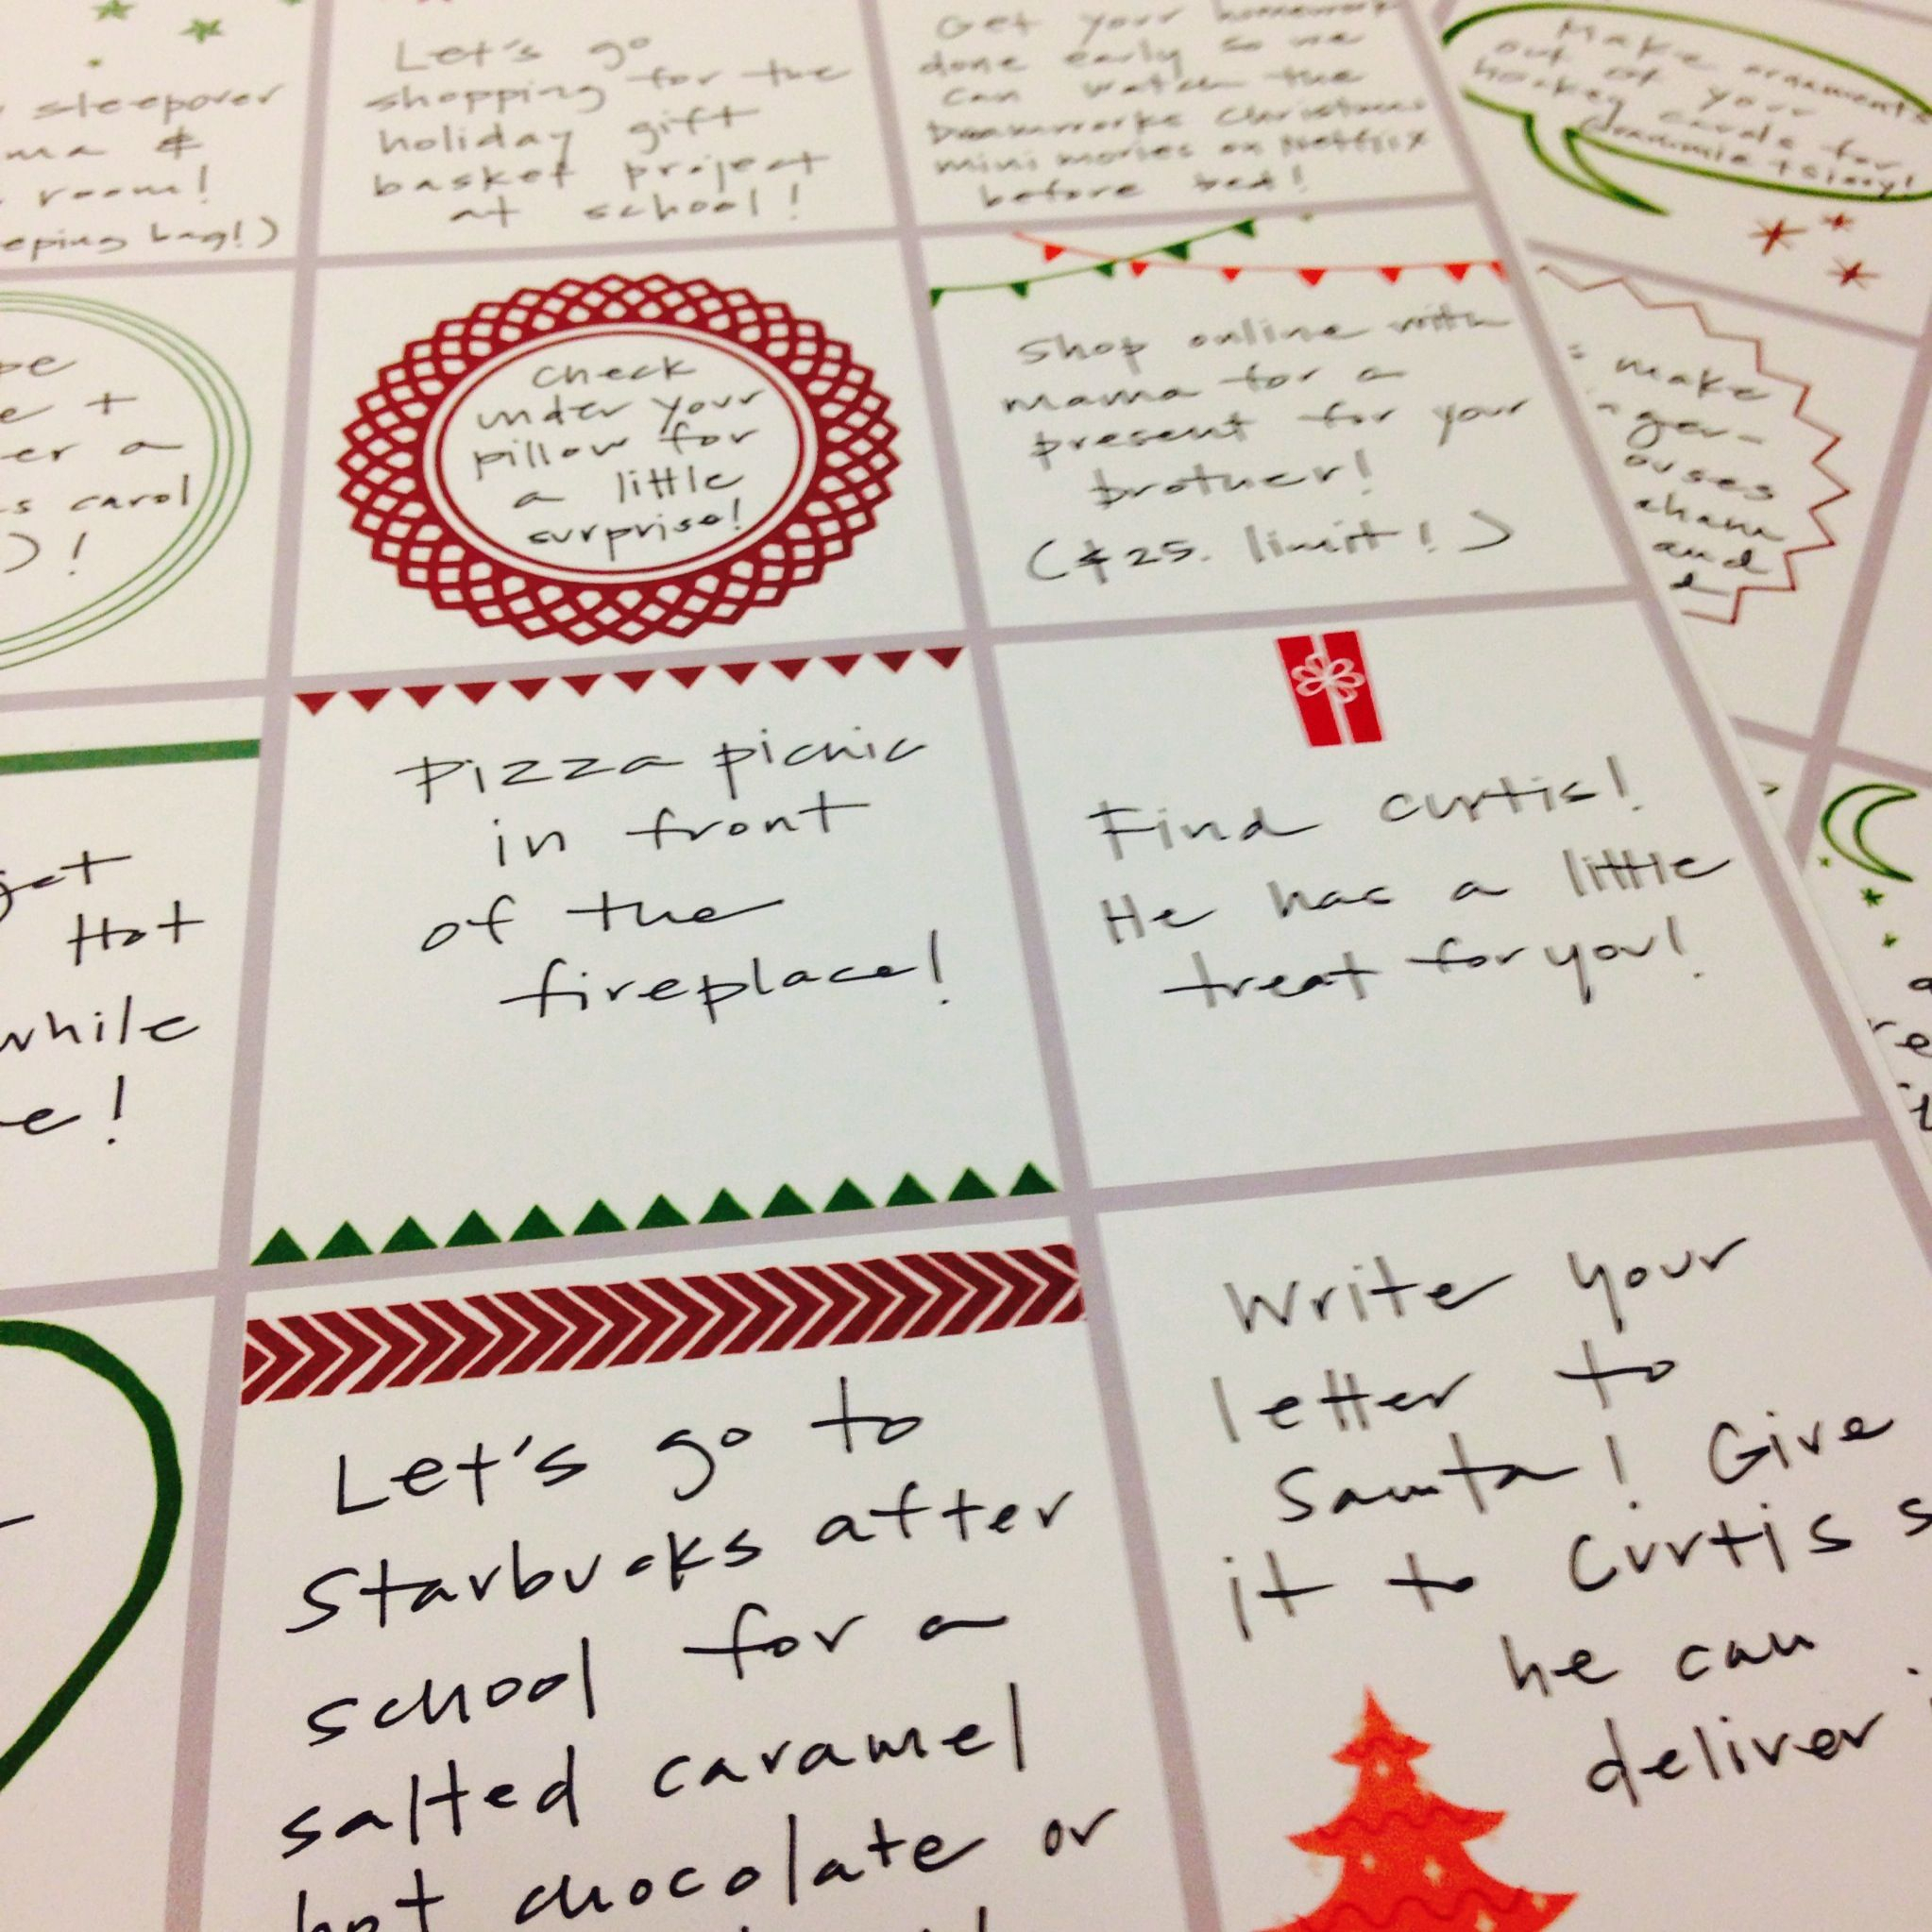 sleepover
ma &
room!
eping bag!)
Let's go
shopping for the
holiday gift
basket project
at school!
Get your homework
done early so we
can watch the
Dreamworks Christmas
mini movies on Netflix
before bed!
Make ornaments
out of your
hockey cards for
Grammie +
e +
er a
s carol
)!
Check
under your
pillow for
a little
surprise!
Shop online with
mama for a
present for your
brother!
($25. limit!)
make
ger-
ouses
and
Hot
while
e!
Pizza picnic
in front
of the
fireplace!
Find Curtis!
He has a little
treat for you!
Let's go to
Starbucks after
school for a
salted caramel
hot chocolate or
Write your
letter to
Santa! Give
it to Curtis s
he can
deliver